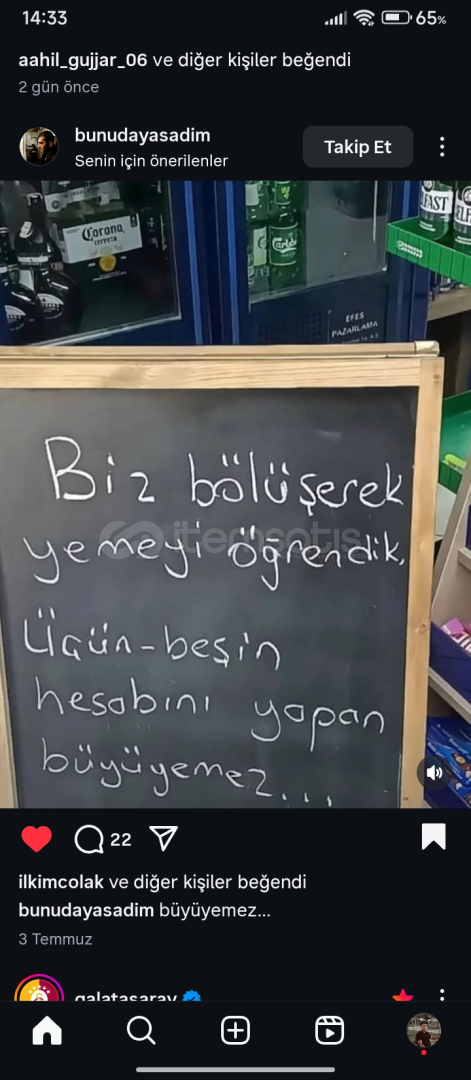 14:33
65%
aahil_gujjar_06 ve diğer kişiler beğendi
2 gün önce
bunudayasadim
Takip Et
Senin için önerilenler
Corona
cerveza
Carlsberg
EFES
PAZARLAMA
Biz bölüşerek
yemeyi öğrendik,
itemsatış
Üçün-beşin
hesabını yapan
büyüyemez...
22
ilkimcolak ve diğer kişiler beğendi
bunudayasadim büyüyemez...
3 Temmuz
galatasaray